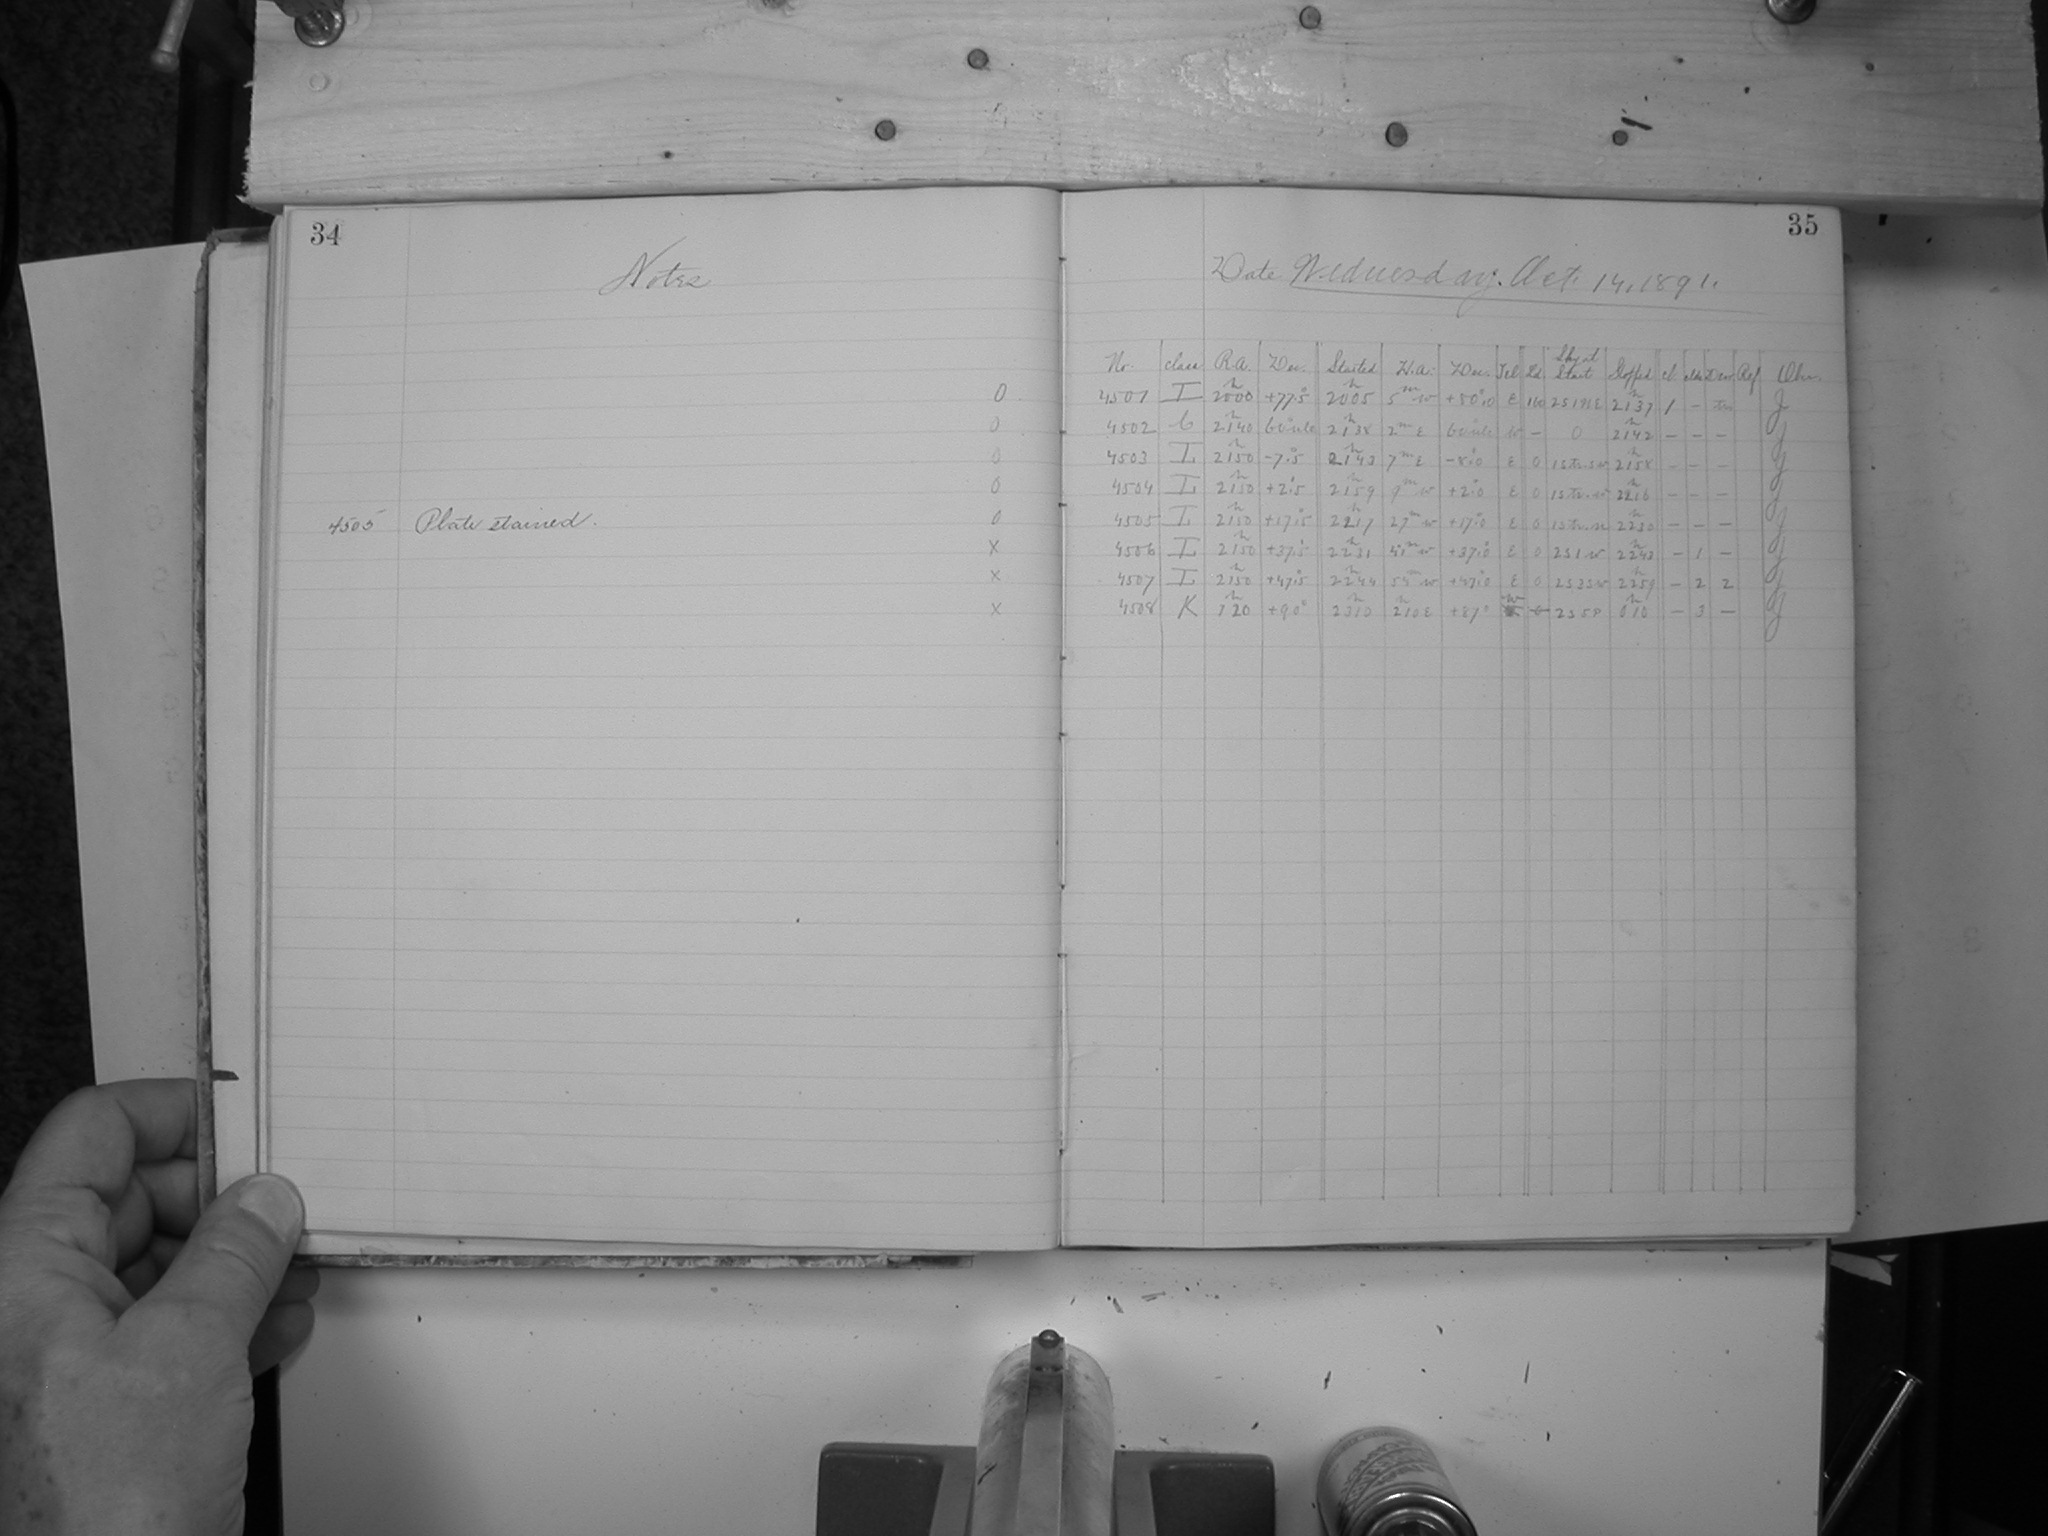 34
Notes
O
O
O
O
4505 Plate stained. O
X
X
X
35
Date Wednesday. Oct. 14, 1891.
No. class R.A. Dec. Started H.A. Dec. Tel Sky at Start Stopped cl. Dew Ref Obs.
4501 I 20h00 +77°.5 20h05 5m W +80°.0 E 2h137 1 - J
4502 C 21h40 21h38 2m E W - 0 21h42 - - - J
4503 I 21h50 -7°.5 21h43 7m E -8°.0 E 0 21h58 - - - J
4504 I 21h50 +2°.5 21h59 9m W +2°.0 E 0 22h16 - - - J
4505 I 21h50 +17°.5 22h17 27m W +17°.0 E 0 22h30 - - - J
4506 I 21h50 +37°.5 22h31 41m W +37°.0 E 0 2S1W 22h43 - 1 - J
4507 I 21h50 +47°.5 22h44 54m W +47°.0 E 0 2S3SW 22h59 - 2 2 J
4508 K 1h20 +90° 23h10 2h10E +87° W 2S5P 0h10 - 3 - J